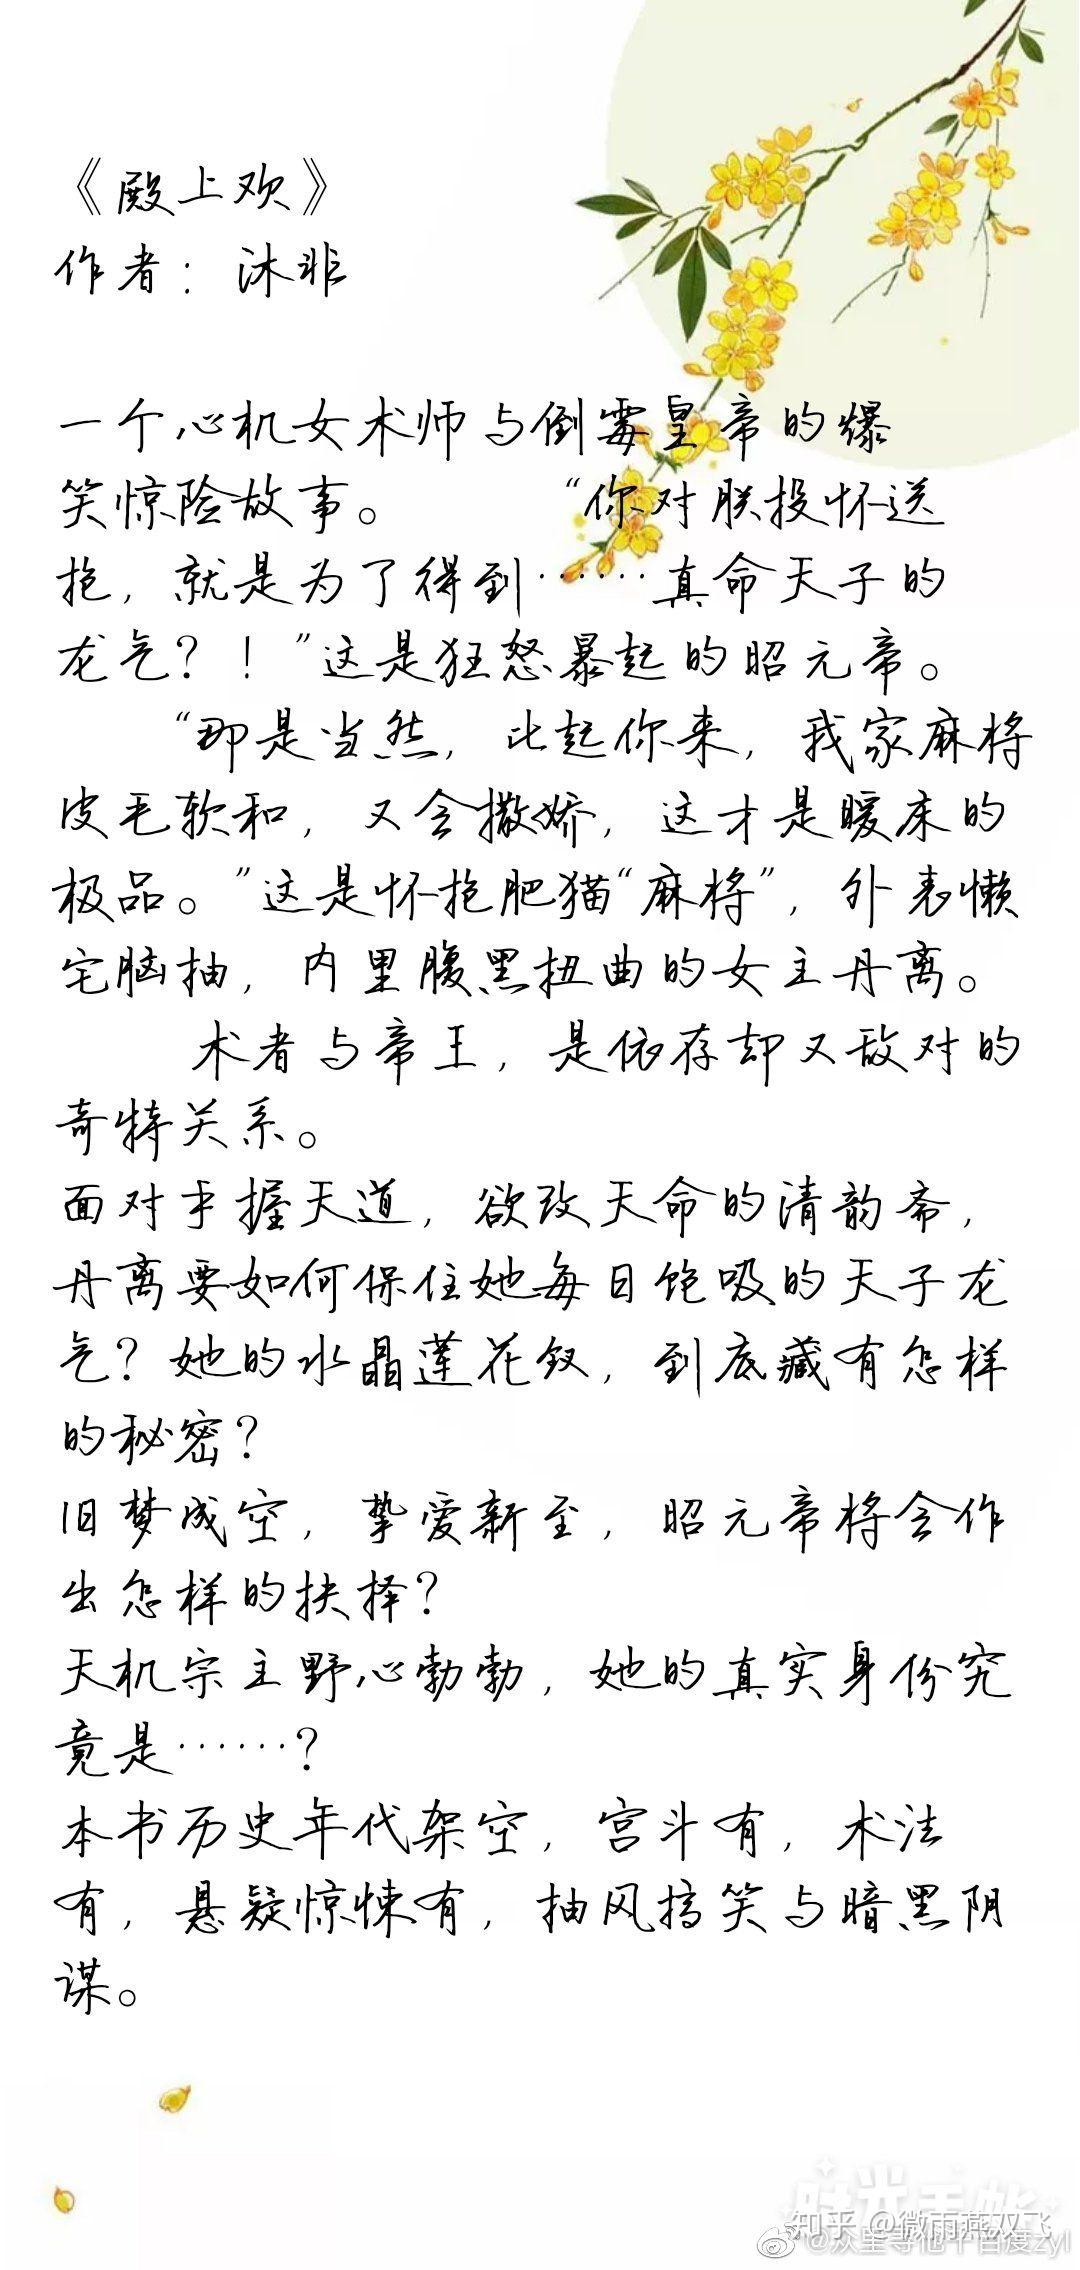 《殿上欢》
作者：沐非
一个心机女术师与倒霉皇帝的爆
笑惊险故事。 “你对朕投怀送
抱，就是为了得到……真命天子的
龙气？！”这是狂怒暴起的昭元帝。
“那是当然，比起你来，我家麻将
皮毛软和，又会撒娇，这才是暖床的
极品。”这是怀抱肥猫“麻将”，外表懒
宅脑抽，内里腹黑扭曲的女主丹离。
术者与帝王，是依存却又敌对的
奇特关系。
面对手握天道，欲改天命的清韵斋，
丹离要如何保住她每日饱吸的天子龙
气？她的水晶莲花钗，到底藏有怎样
的秘密？
旧梦成空，挚爱新至，昭元帝将会作
出怎样的抉择？
天机宗主野心勃勃，她的真实身份究
竟是……？
本书历史年代架空，宫斗有，术法
有，悬疑惊悚有，抽风搞笑与暗黑阴
谋。
时光手帐
知乎 @微雨燕双飞
@众里寻他千百度zyl